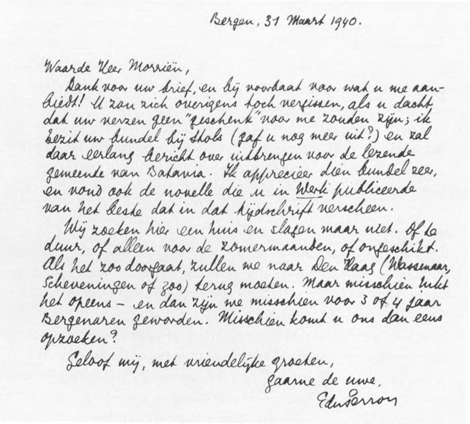 Bergen, 31 Maart 1940.
Waarde Heer Morriën,
Dank voor uw brief, en bij voorbaat voor wat u me aan-
biedt! U zou zich overigens toch vergissen, als u dacht
dat uw verzen geen "geschenk" voor me zouden zijn; ik
bezit uw bundel bij Stols (gaf u nog meer uit?) en zal
daar eerlang bericht over uitbrengen voor de lezende
gemeente van Batavia. Ik apprecieer dien bundel zeer,
en vond ook de novelle die u in Werk publiceerde
van het beste dat in dat tijdschrift verscheen.
Wij zoeken hier een huis en slagen maar niet. Of te
duur, of alleen voor de zomermaanden, of ongeschikt.
Als het zoo doorgaat, zullen we naar Den Haag (Wassenaar,
Scheveningen of zoo) terug moeten. Maar misschien lukt
het opeens – en dan zijn we misschien voor 3 of 4 jaar
Bergenaren geworden. Misschien komt u ons dan eens
opzoeken?
Geloof mij, met vriendelijke groeten,
gaarne de uwe,
EduPerron